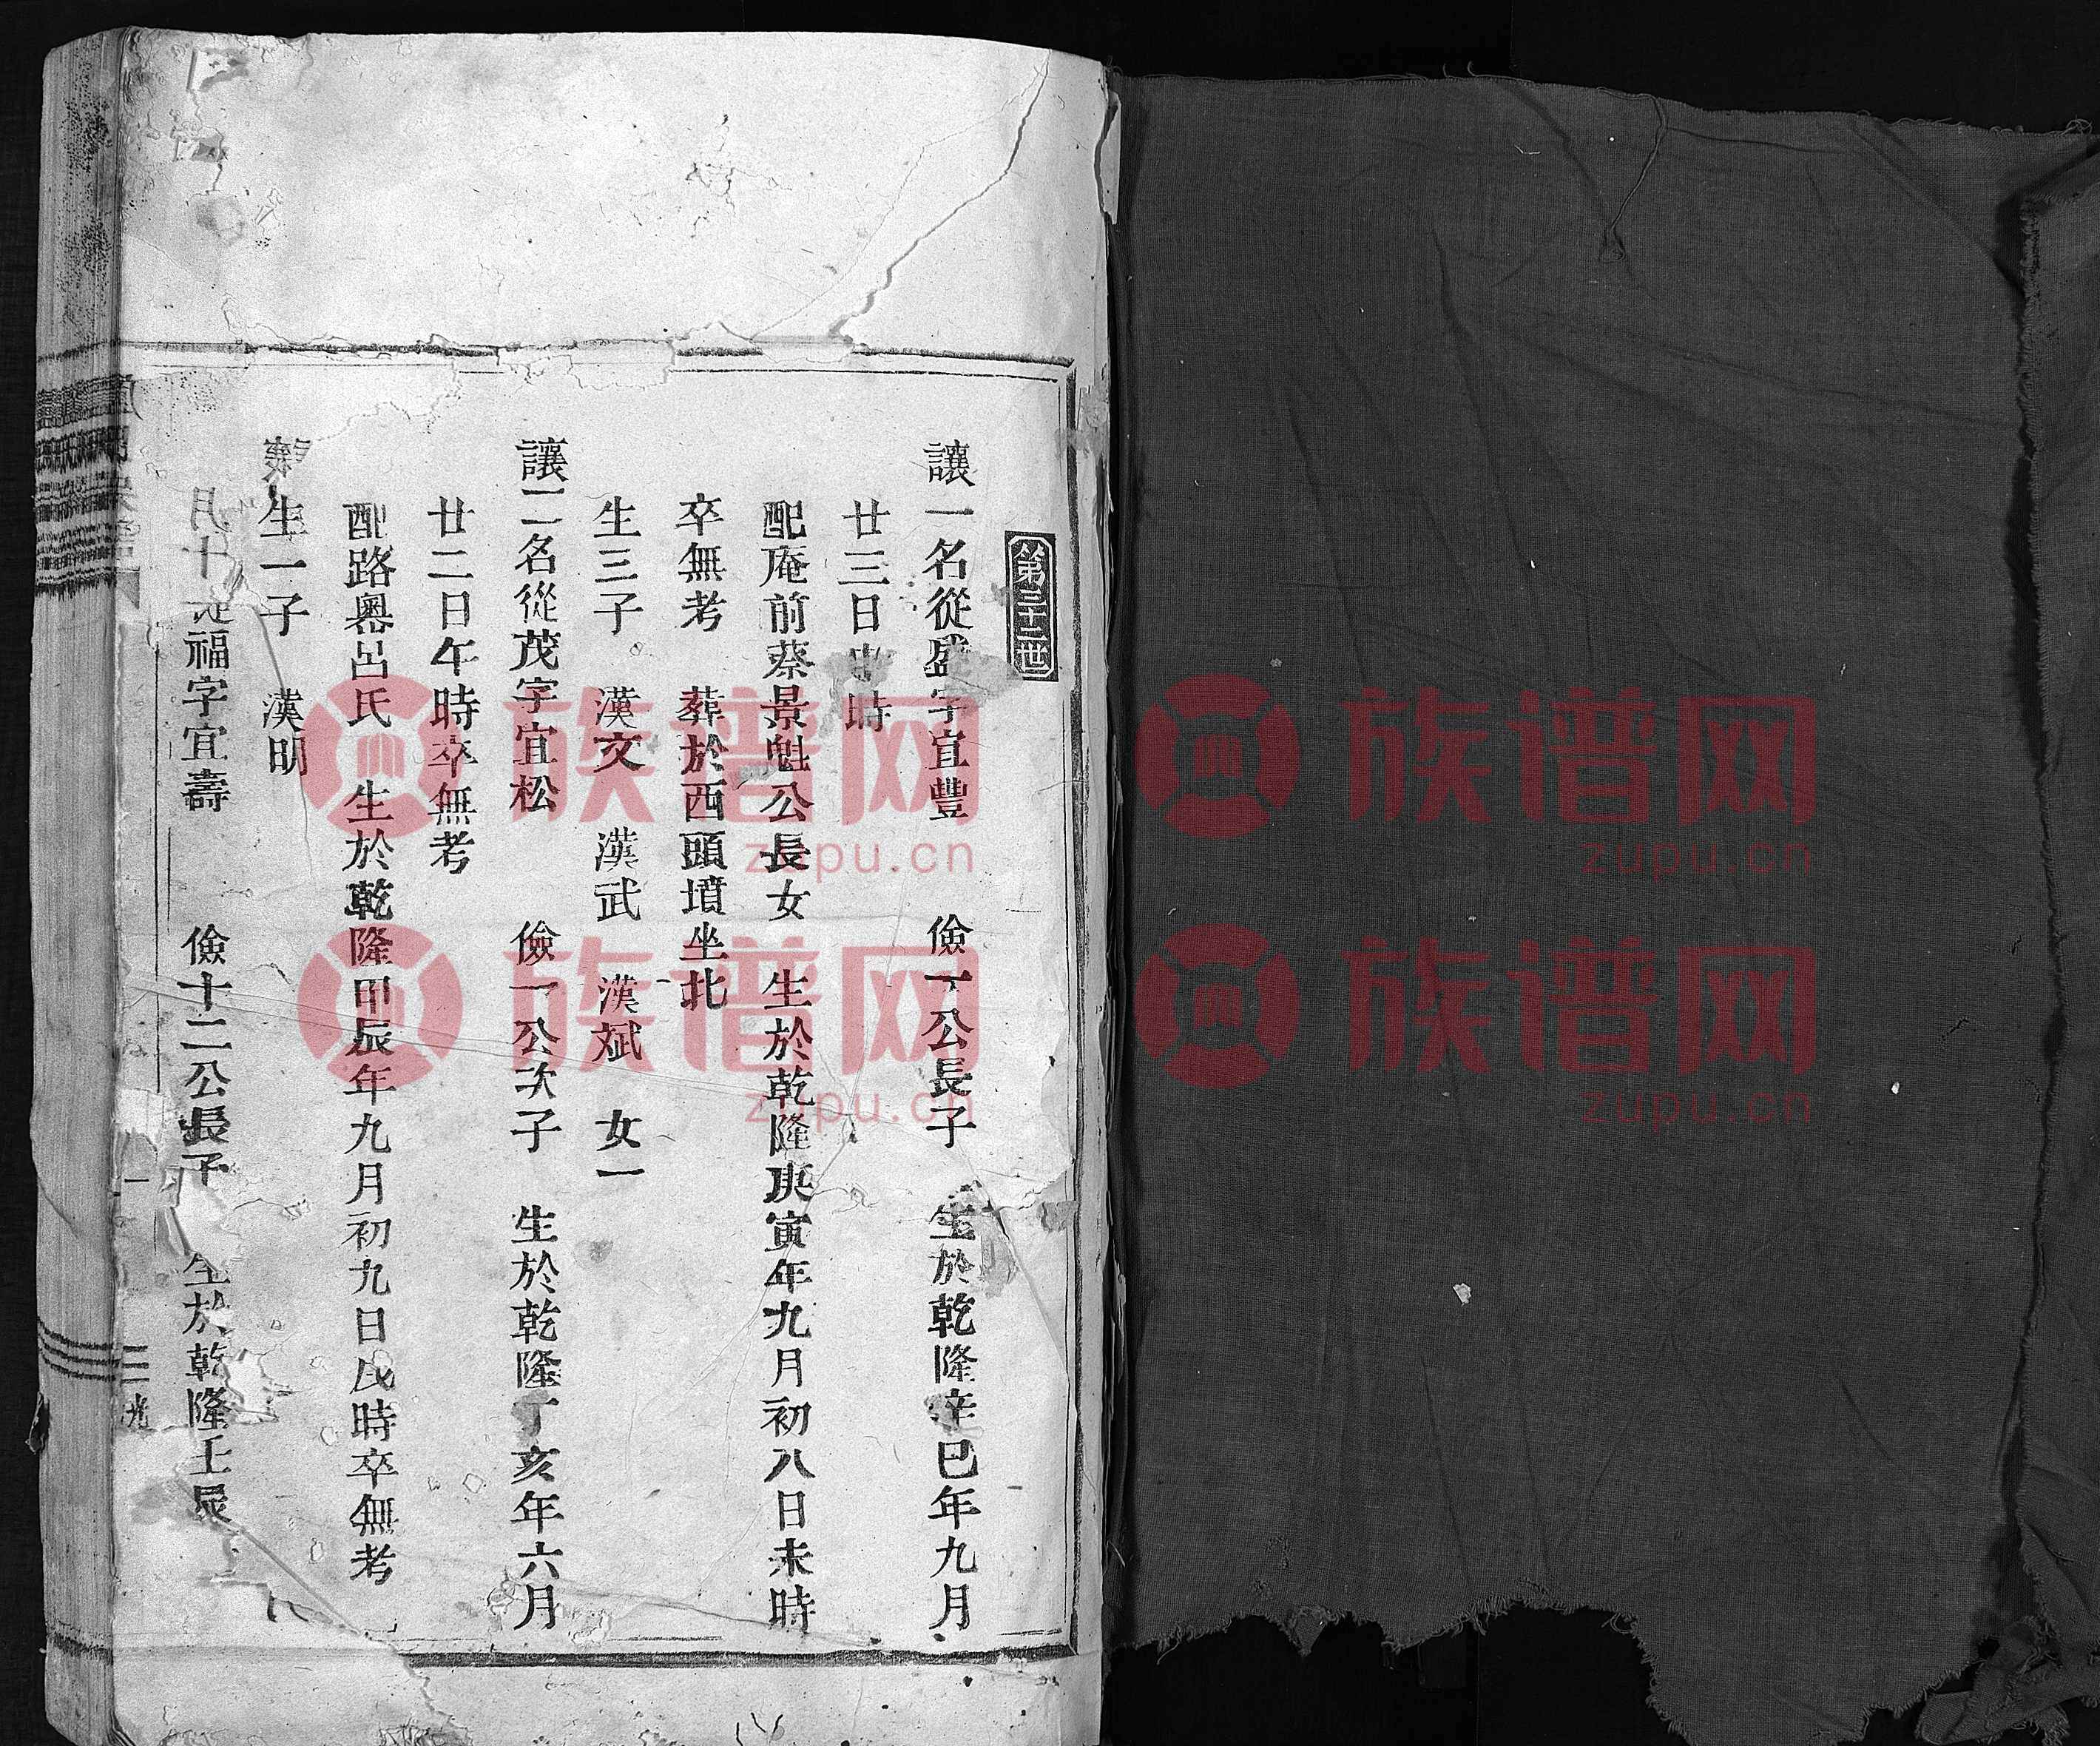 第二十一世
讓一名從盛字宜豐 儉一公長子 生於乾隆辛巳年九月
廿三日 時
配庵前蔡景魁公長女 生於乾隆庚寅年九月初八日未時
卒無考 葬於西頭墳坐北
生三子 漢文 漢武 漢斌 女一
讓二名從茂字宜松 儉一公次子 生於乾隆丁亥年六月
廿二日午時卒無考
配路粵呂氏 生於乾隆甲辰年九月初九日戌時卒無考
生一子 漢明
福字宜壽 儉十二公長子 生於乾隆壬辰
族谱网
zupu.cn
族谱网
zupu.cn
族谱网
zupu.cn
族谱网
zupu.cn